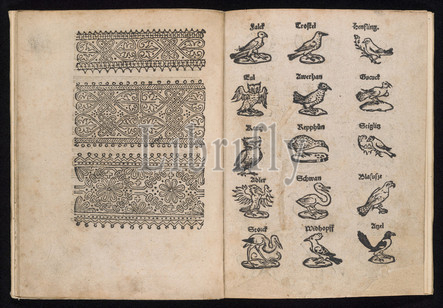 Falck Trostel Henfling.
Eul Awerhan Gaeck
Repphůn Stiglitz
Adler Schwan
Storck Widhopff Atzel
Librifly